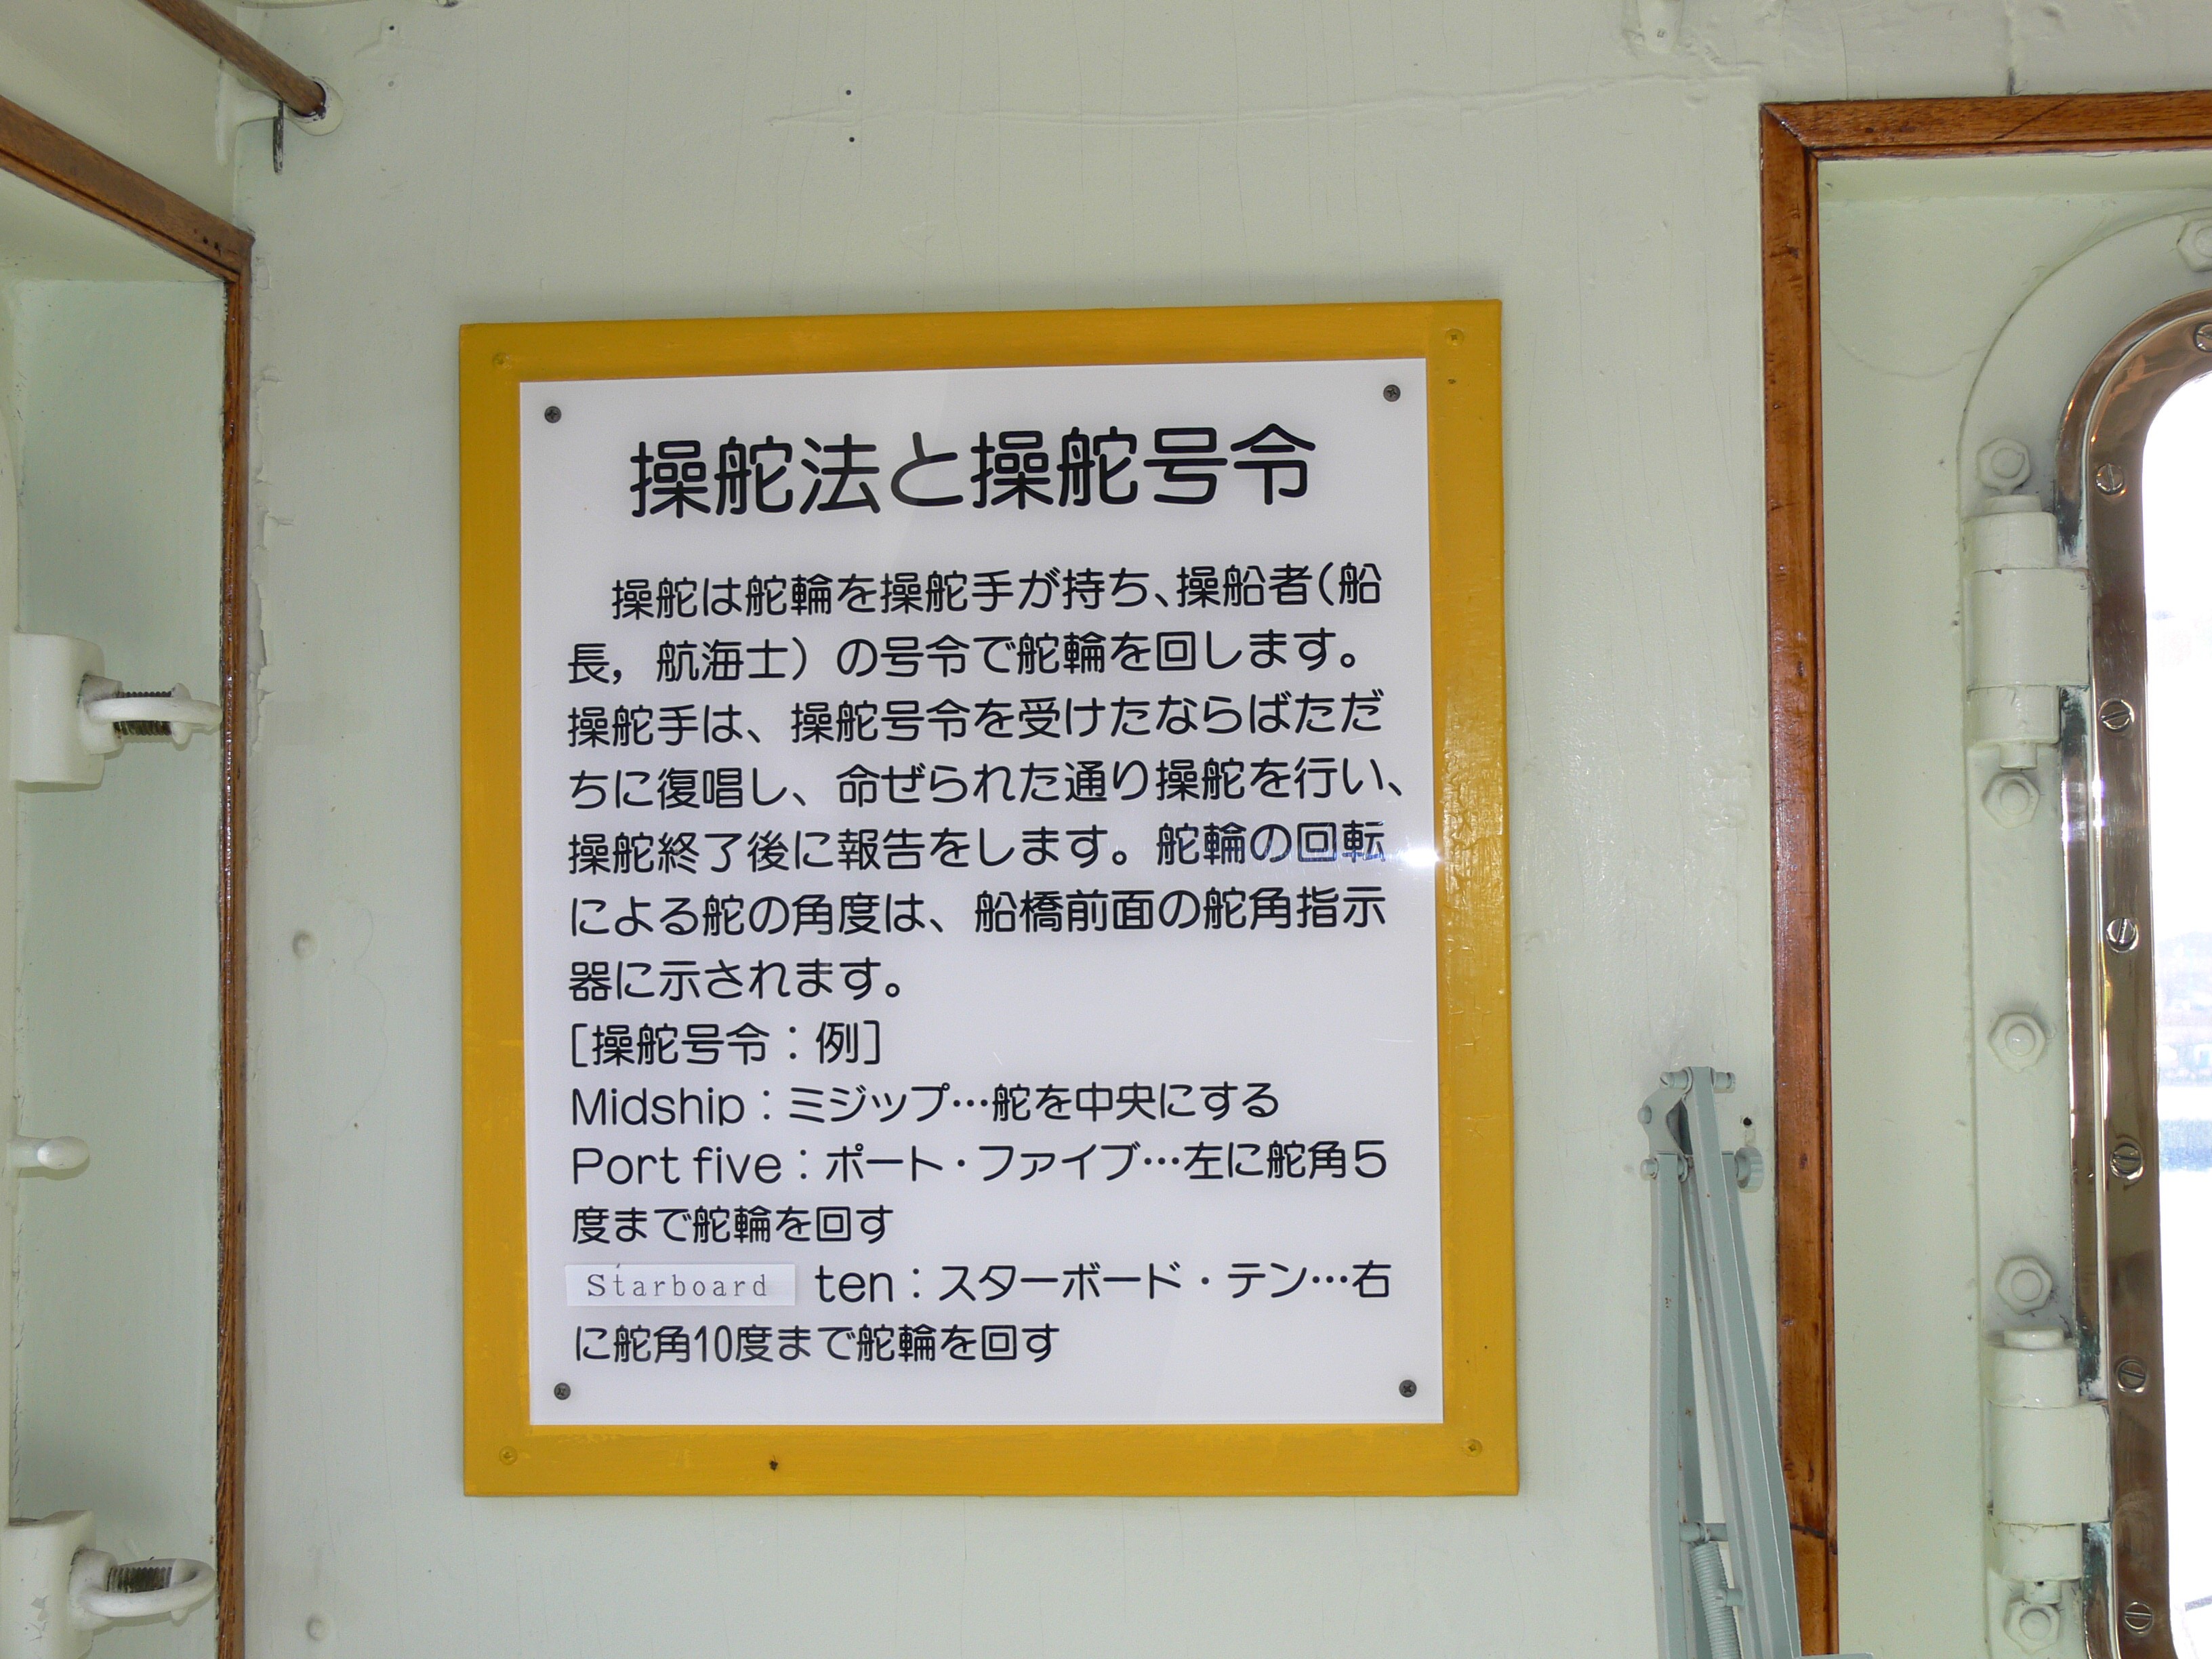 操舵法と操舵号令
操舵は舵輪を操舵手が持ち、操船者(船
長，航海士）の号令で舵輪を回します。
操舵手は、操舵号令を受けたならばただ
ちに復唱し、命ぜられた通り操舵を行い、
操舵終了後に報告をします。舵輪の回転
による舵の角度は、船橋前面の舵角指示
器に示されます。
[操舵号令：例]
Midship：ミジップ…舵を中央にする
Port five：ポート・ファイブ…左に舵角5
度まで舵輪を回す
Starboard ten：スターボード・テン…右
に舵角10度まで舵輪を回す